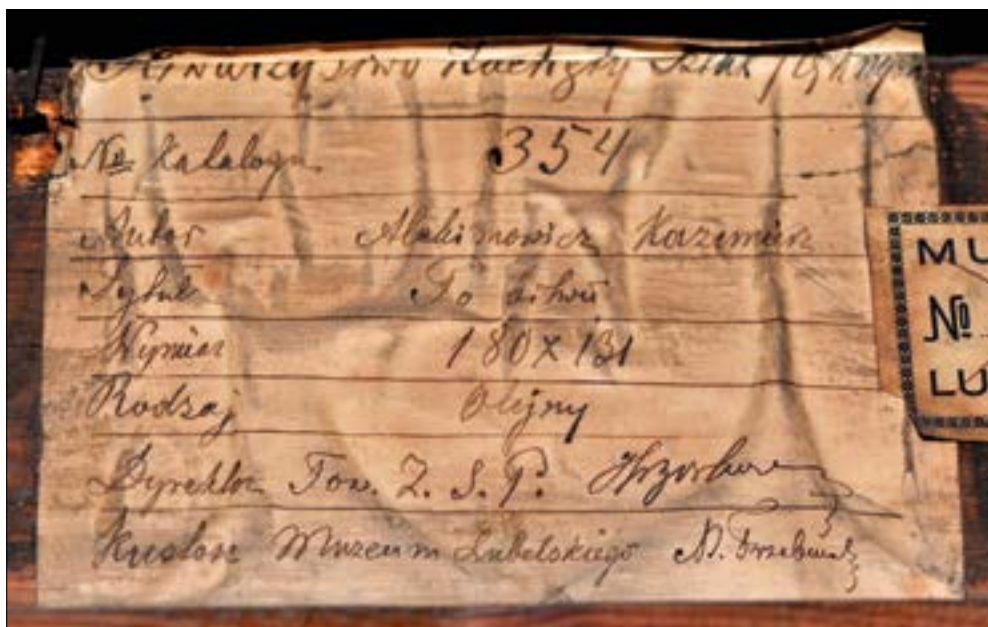 Towarzystwo Zachęty Sztuk Pięknych
No Katalogu 354
Autor Alchimowicz Kazimierz
Tytuł Po bitwie
Wymiar 180 x 131
Rodzaj Olejny
Dyrektor Tow. Z. S. P.
Kustosz Muzeum Lubelskiego
MU
No
LU